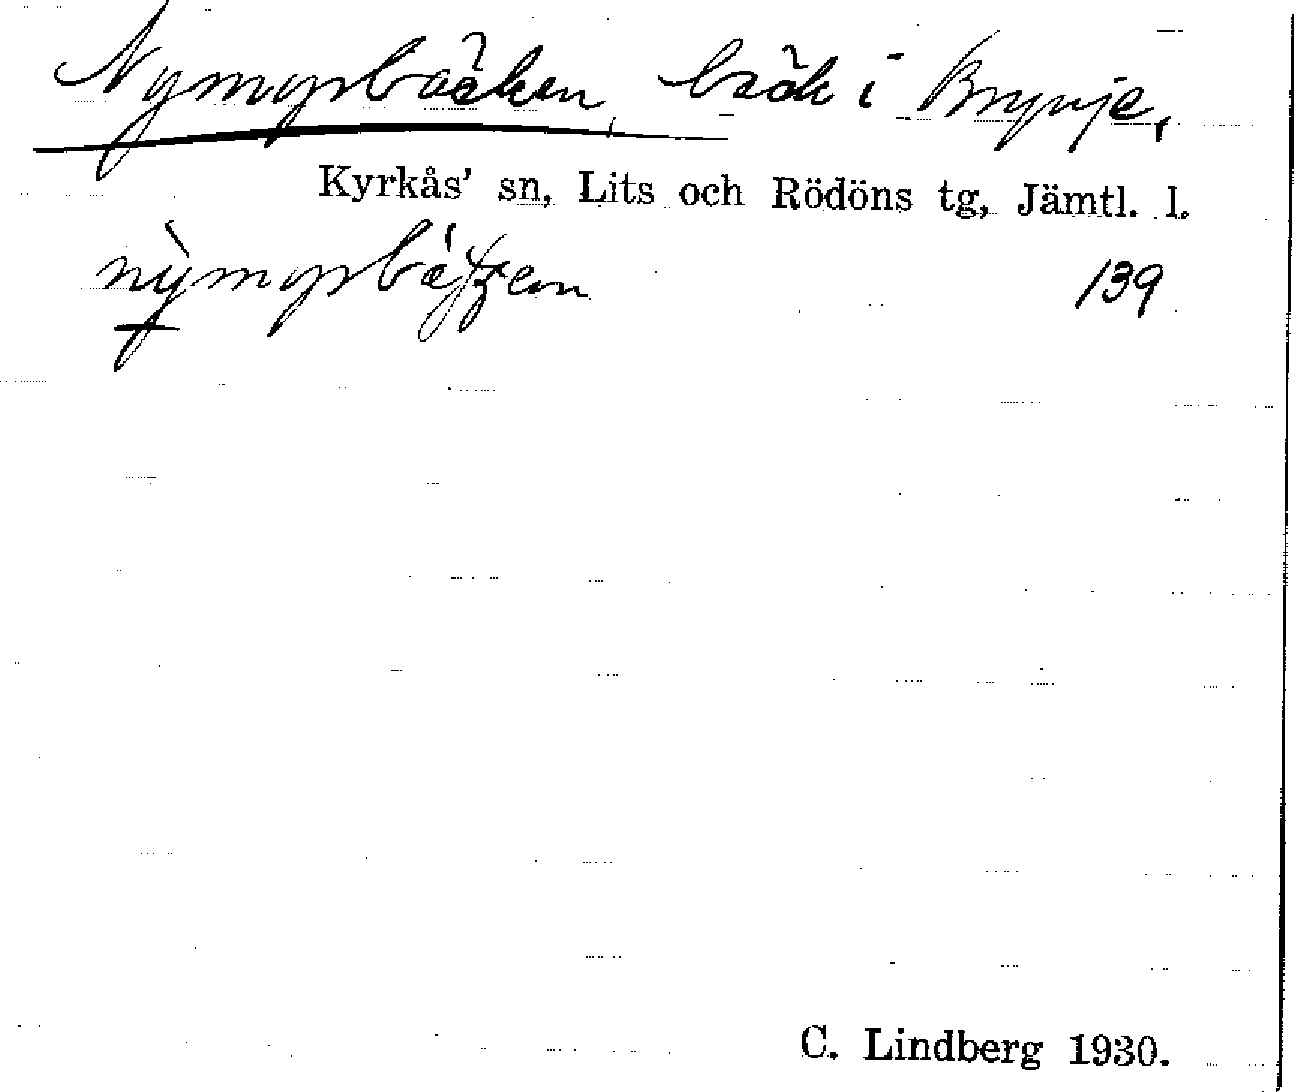 Nymyrbäcken, bäck i Brynje,
Kyrkås' sn, Lits och Rödöns tg, Jämtl. l.
139
C. Lindberg 1930.